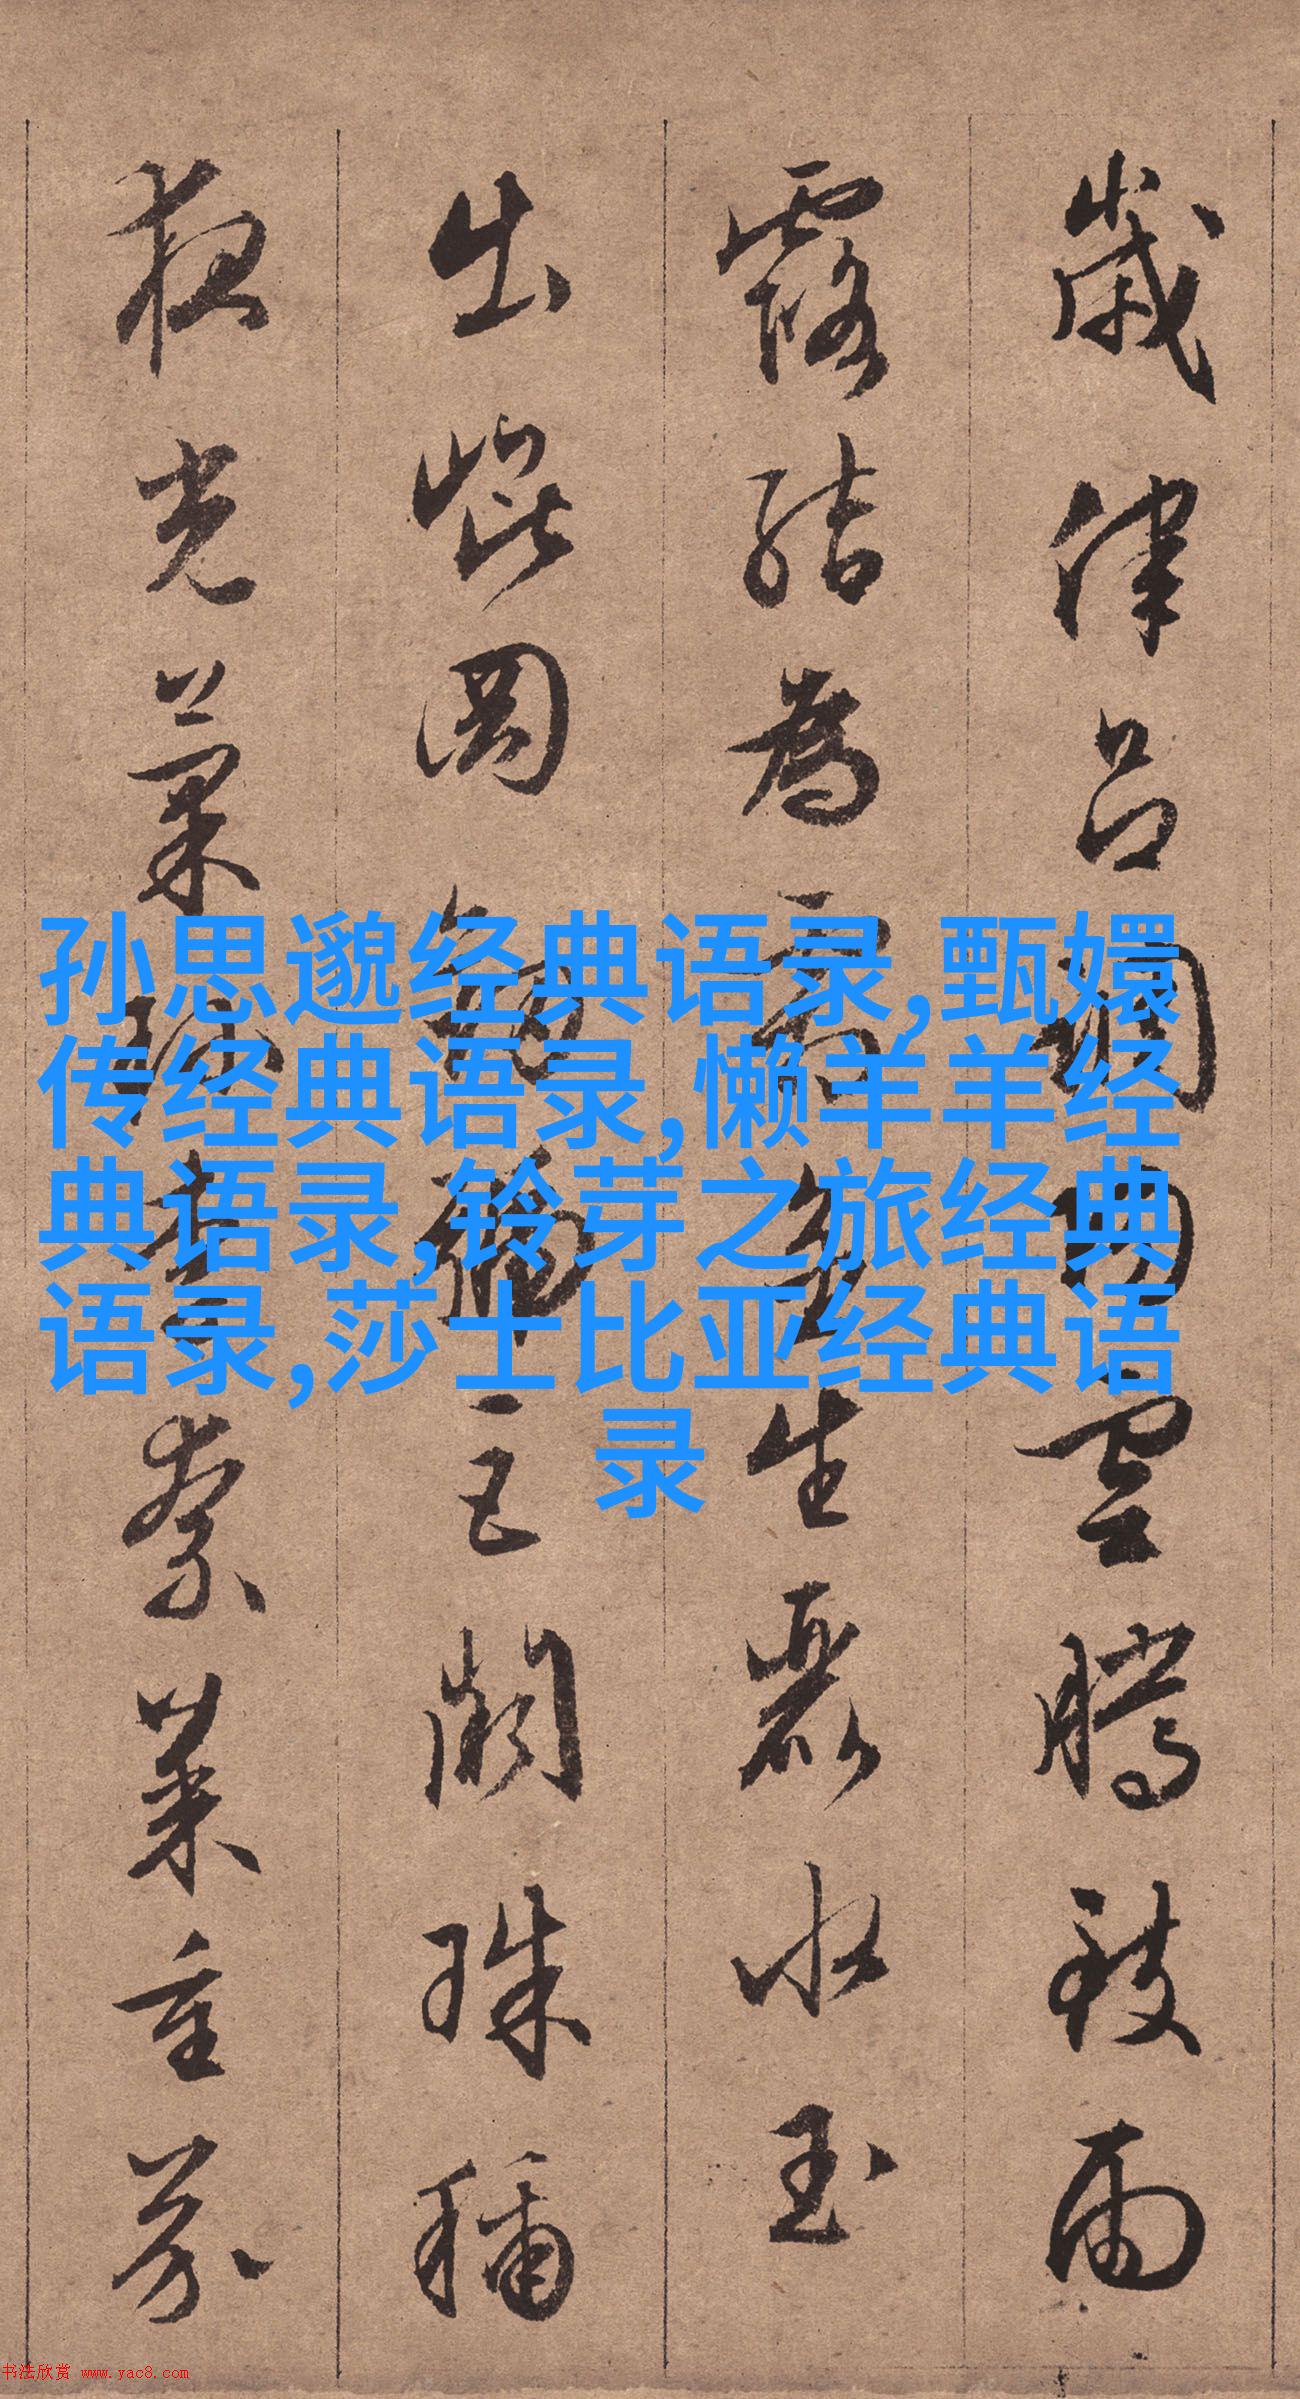 歲律呂調陽雲騰致雨
露結為霜金生麗水玉
出崐岡劍號巨闕珠稱
夜光菓珍李柰菜重芥
孙思邈经典语录,甄嬛
传经典语录,懒羊羊经
典语录,铃芽之旅经典
语录,莎士比亚经典语
录
书法欣赏 www.yac8.com